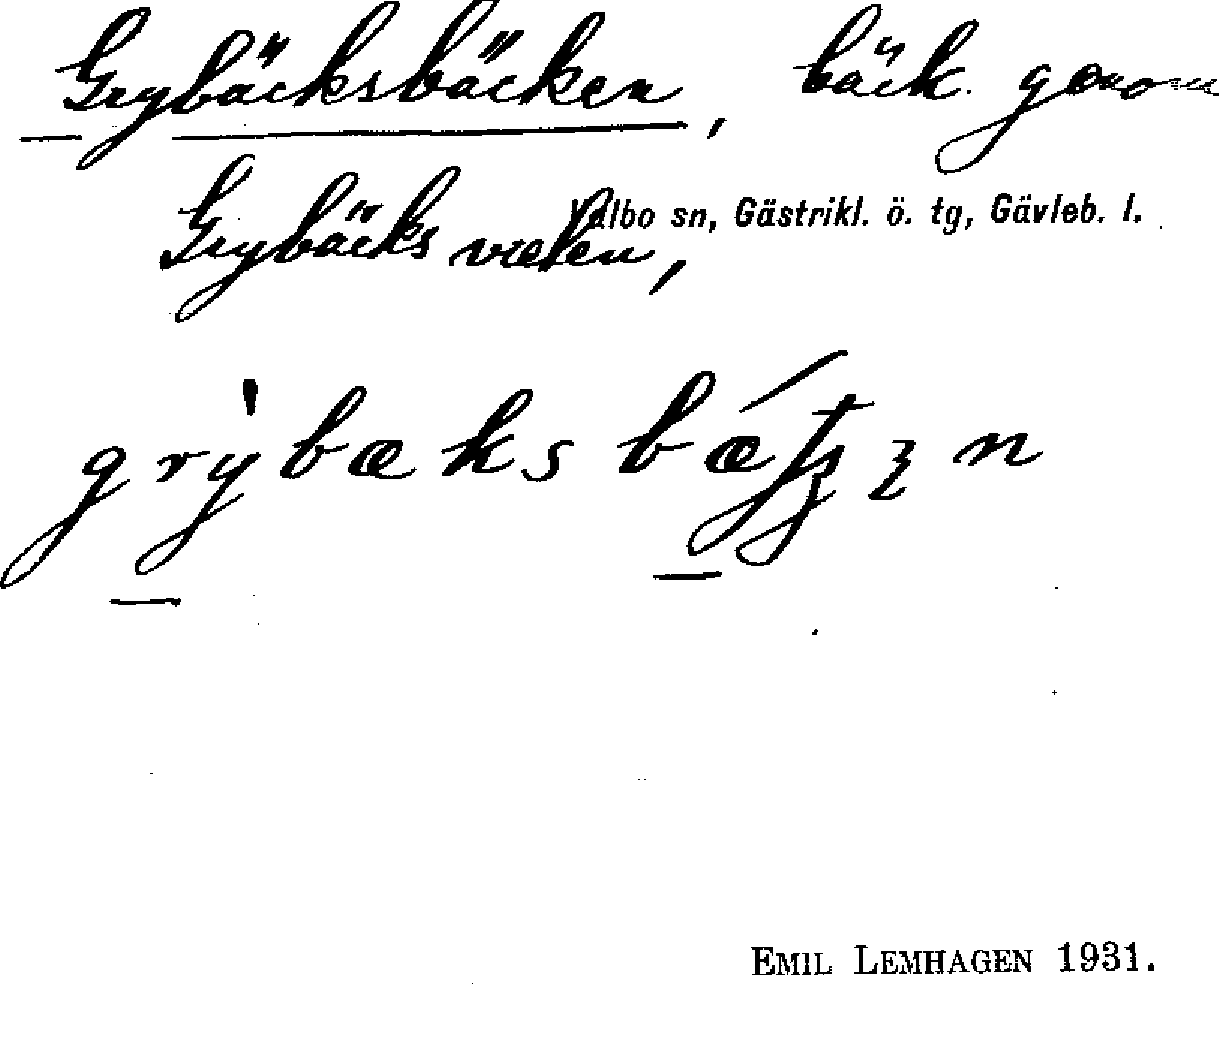 Grybäcksbäcken, bäck genom
Valbo sn, Gästrikl. ö. tg, Gävleb. l.
Grybäcks vreten,
EMIL LEMHAGEN 1931.